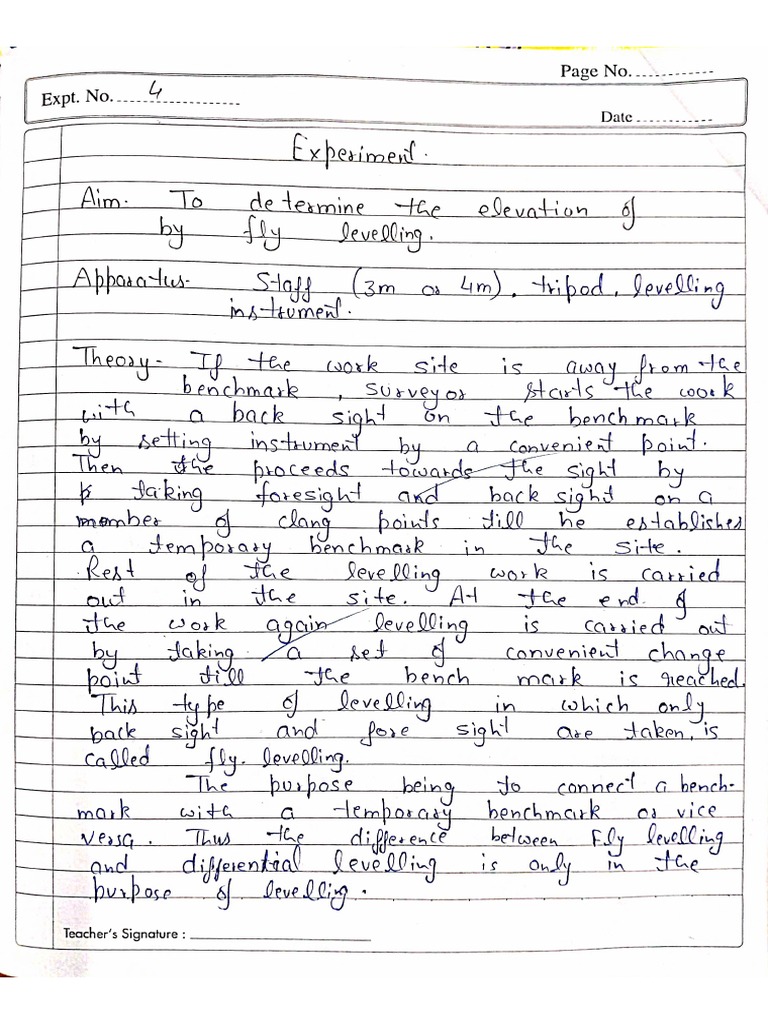 Page No.
Expt. No. 4
Date
Experiment.
Aim. To determine the elevation of
by fly levelling.
Apparatus- Staff (3m or 4m), tripod, levelling
instrument.
Theory- If the work site is away from the
benchmark, surveyor starts the work
with a back sight on the benchmark
by setting instrument by a convenient point.
Then the proceeds towards the sight by
taking foresight and back sight on a
member of clang points till he establishes
a temporary benchmark in the site.
Rest of the levelling work is carried
out in the site. At the end of
the work again levelling is carried out
by taking a set of convenient change
point till the bench mark is reached.
This type of levelling in which only
back sight and fore sight are taken, is
called fly. levelling.
The purpose being to connect a bench-
mark with a temporary benchmark or vice
versa. Thus the difference between Fly levelling
and differential levelling is only in the
purpose of levelling.
Teacher's Signature :